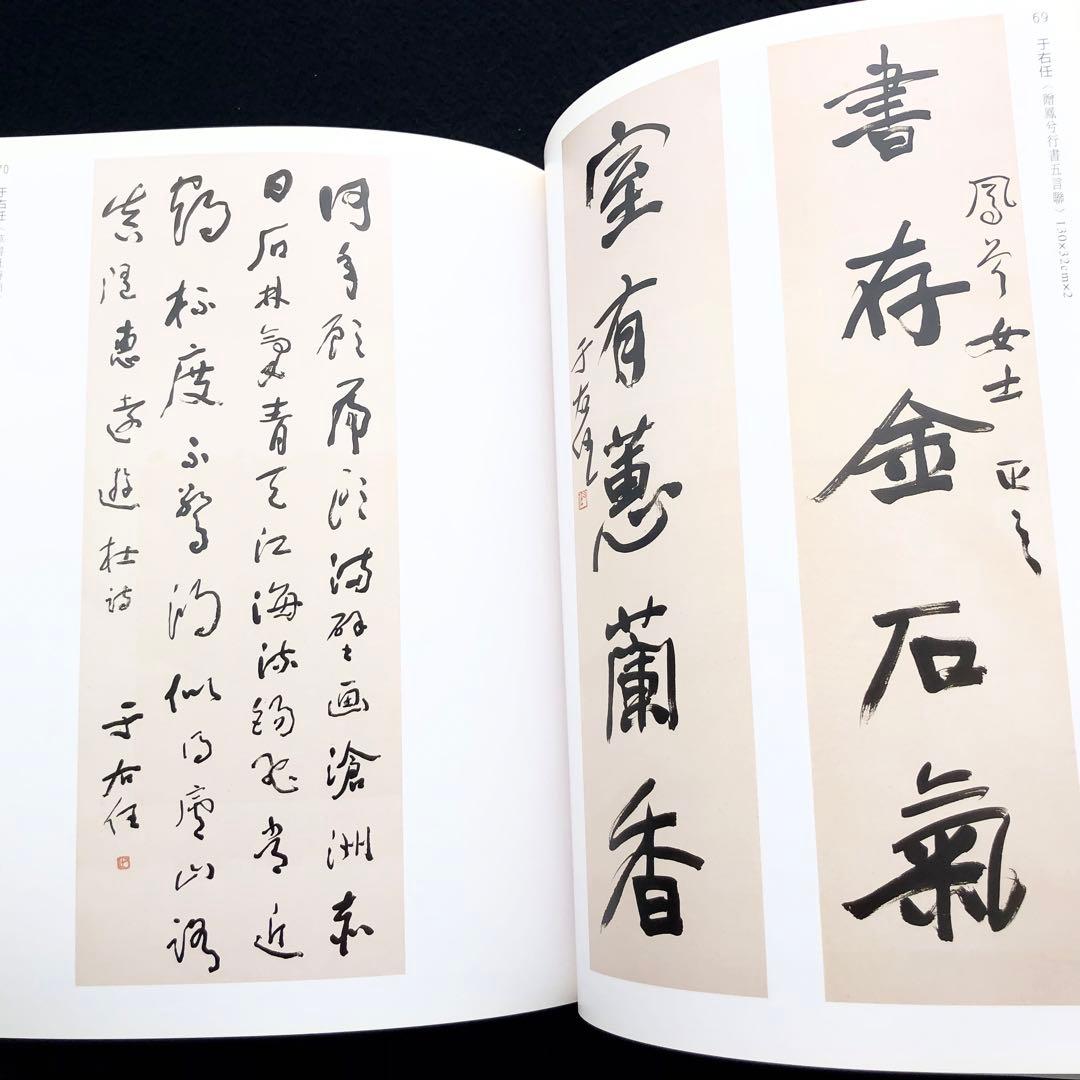 69 于右任〈贈鳳兮行書五言聯〉130×32cm×2
書存金石氣
鳳兮女士 正之
室有蕙蘭香
于右任
何年顧虎頭滿壁画滄洲赤
日石林氣青天江海流錫飛常近
鶴杯度不驚鷗似得廬山路
真隨惠遠遊 杜詩 于右任
70 于右任